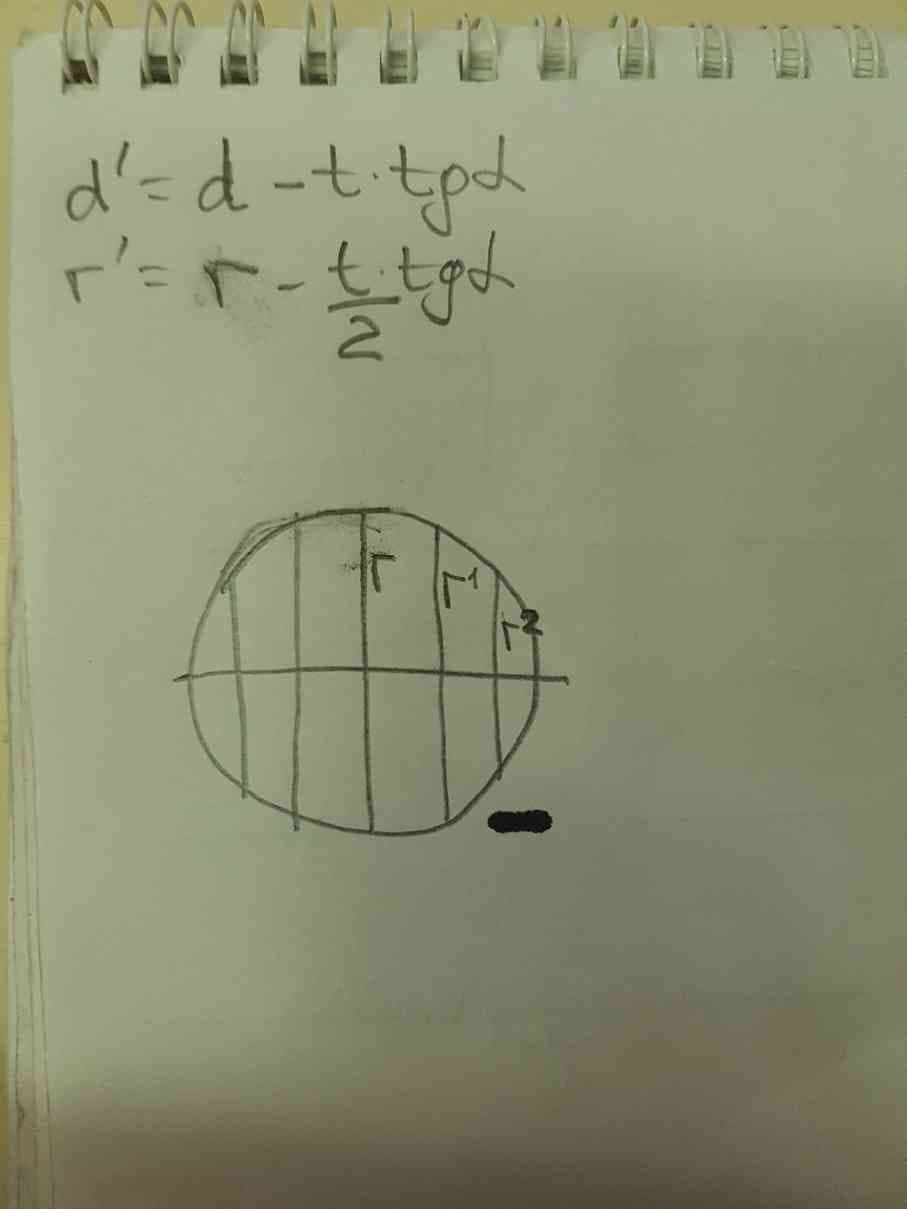 d' = d - t · tgα
r' = r - t/2 · tgα
r r¹
r²